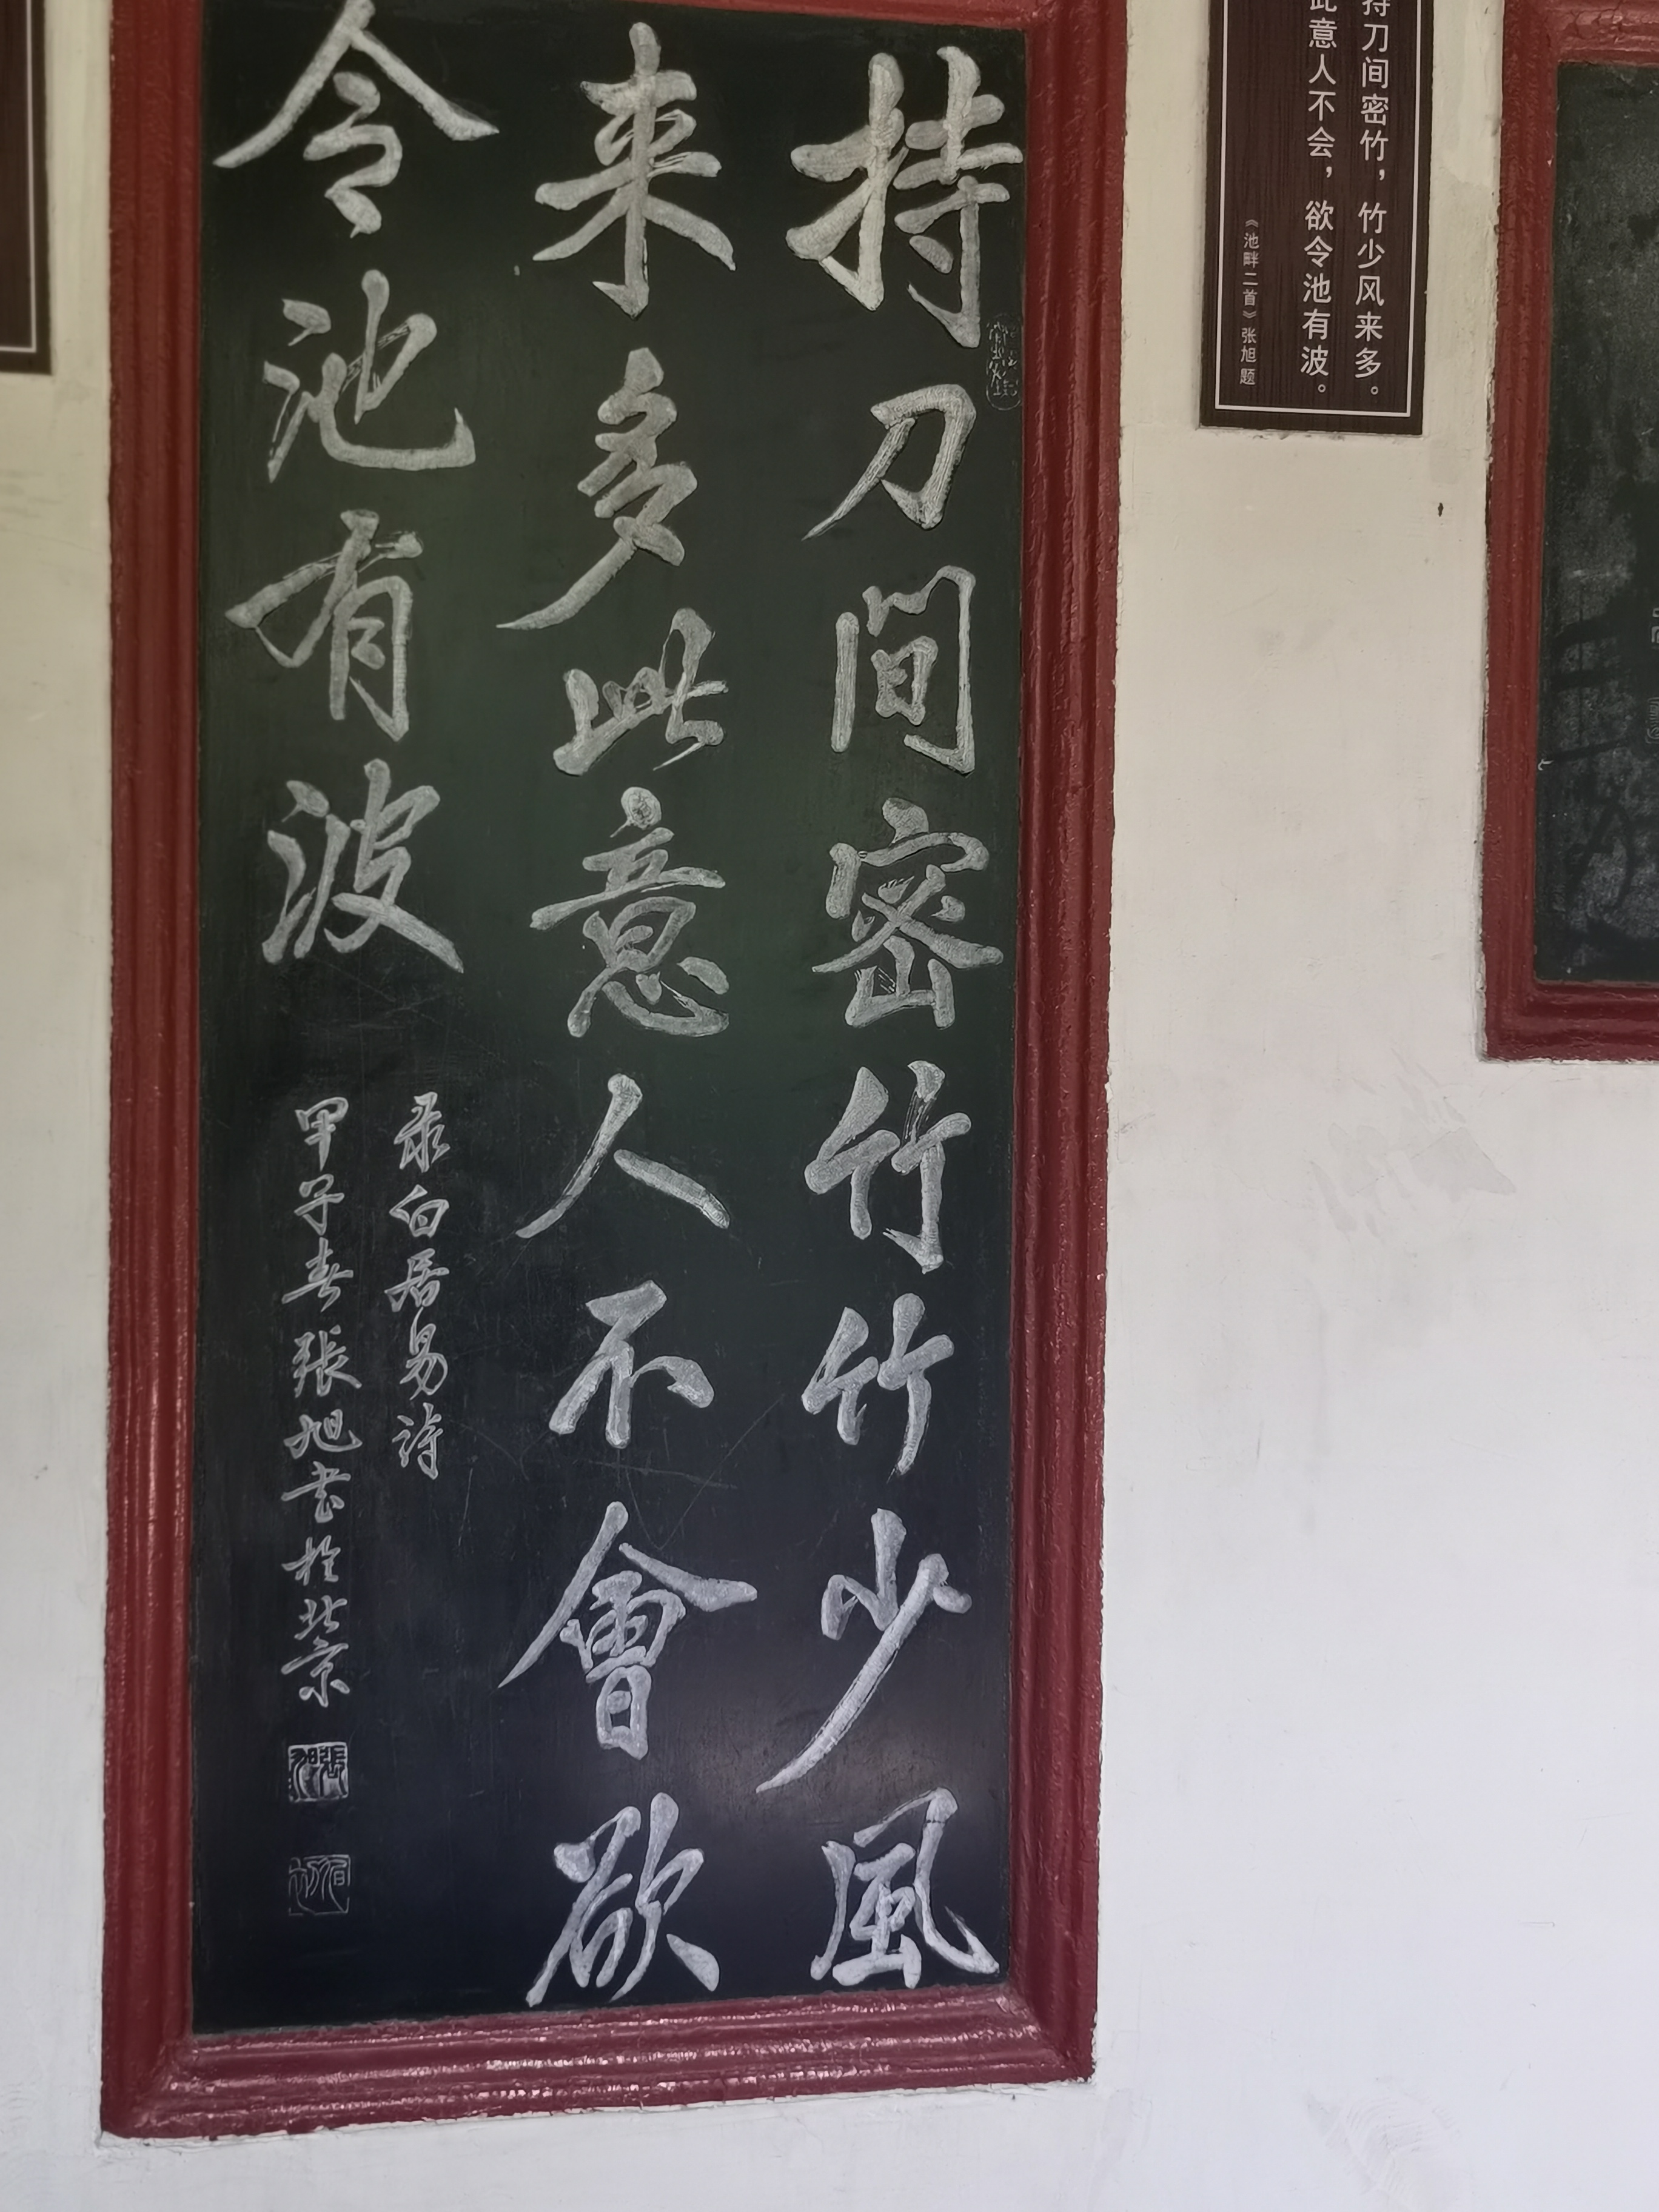 持刀間密竹竹少風
来多此意人不會欲
令池有波
录白居易詩
甲子春張旭书於北京
持刀间密竹，竹少风来多。
此意人不会，欲令池有波。
《池畔二首》张旭题